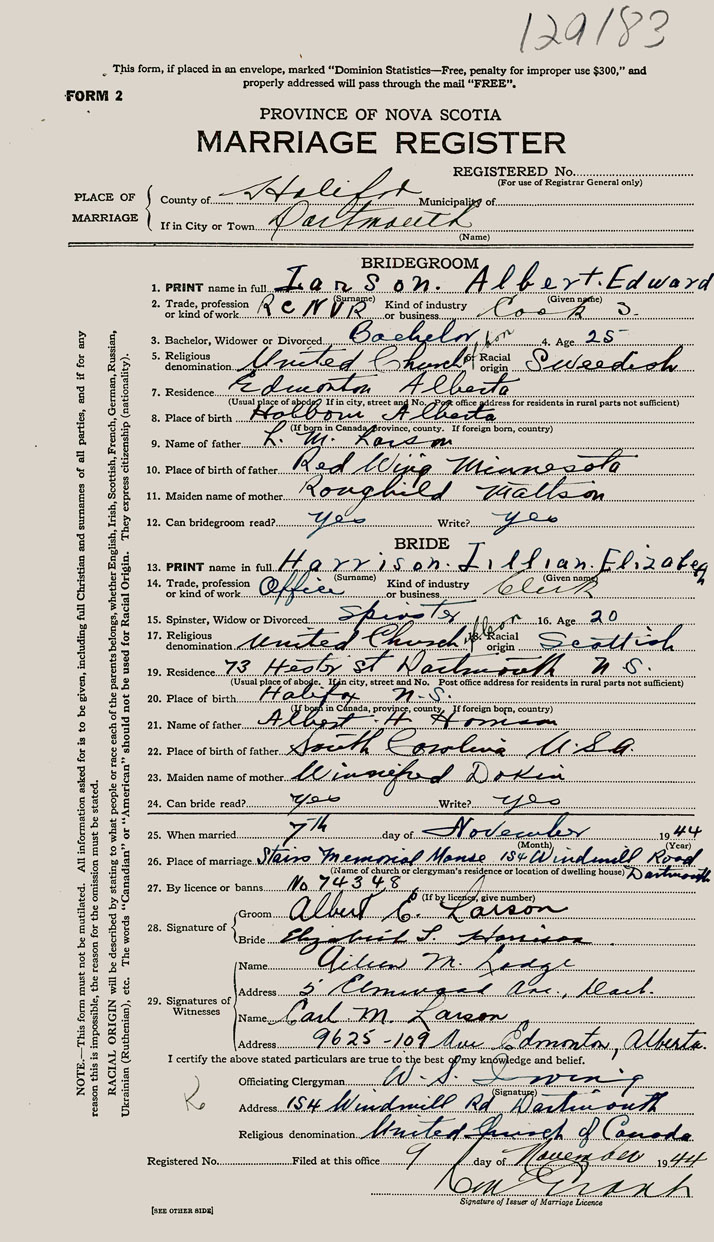 129183
This form, if placed in an envelope, marked “Dominion Statistics—Free, penalty for improper use $300,” and
properly addressed will pass through the mail “FREE”.
FORM 2
PROVINCE OF NOVA SCOTIA
MARRIAGE REGISTER
REGISTERED No.
(For use of Registrar General only)
PLACE OF MARRIAGE
County of Halifax Municipality of
If in City or Town Dartmouth
(Name)
BRIDEGROOM
1. PRINT name in full Larson. Albert. Edward
(Surname) (Given name)
2. Trade, profession or kind of work RCNVR Kind of industry or business Cook S.
3. Bachelor, Widower or Divorced Bachelor 4. Age 25
5. Religious denomination United Church Racial origin Sweedish
7. Residence Edmonton Alberta
(Usual place of abode. If in city, street and No. Post office address for residents in rural parts not sufficient)
8. Place of birth Holborn Alberta
(If born in Canada, province, county. If foreign born, country)
9. Name of father L. M. Larson
10. Place of birth of father Red Wing Minnesota
11. Maiden name of mother Mattson
12. Can bridegroom read? yes Write? yes
BRIDE
13. PRINT name in full Harrison. Lillian. Elizabeth
(Surname) (Given name)
14. Trade, profession or kind of work Office Kind of industry or business Clerk
15. Spinster, Widow or Divorced Spinster 16. Age 20
17. Religious denomination United Church 18. Racial origin Scottish
19. Residence 73 Hester St Dartmouth N.S.
(Usual place of abode. If in city, street and No. Post office address for residents in rural parts not sufficient)
20. Place of birth Halifax N.S.
(If born in Canada, province, county. If foreign born, country)
21. Name of father Albert H Harrison
22. Place of birth of father South Carolina U.S.A.
23. Maiden name of mother Winnifred Dakin
24. Can bride read? yes Write? yes
25. When married 7th day of November 1944
(Month) (Year)
26. Place of marriage Stairs Memorial Manse 154 Windmill Road
(Name of church or clergyman's residence or location of dwelling house) Dartmouth
27. By licence or banns No 74348
(If by licence, give number)
28. Signature of
Groom Albert E. Larson
Bride Elizabeth L. Harrison
29. Signatures of Witnesses
Name Aileen M. Lodge
Address 5 Elmwood Ave., Dart.
Name Carl M Larson
Address 9625-109 Ave Edmonton, Alberta.
I certify the above stated particulars are true to the best of my knowledge and belief.
Officiating Clergyman W. S. Irving
(Signature)
Address 154 Windmill Rd Dartmouth
Religious denomination United Church of Canada
Registered No. Filed at this office 9 day of November 1944
Grant
Signature of Issuer of Marriage Licence
[SEE OTHER SIDE]
NOTE.—This form must not be mutilated. All information asked for is to be given, including full Christian and surnames of all parties, and if for any
reason this is impossible, the reason for the omission must be stated.
RACIAL ORIGIN will be described by stating to what people or race each of the parents belongs, whether English, Irish, Scottish, French, German, Russian,
Ukrainian (Ruthenian), etc. The words “Canadian” or “American” should not be used for Racial Origin. They express citizenship (nationality).